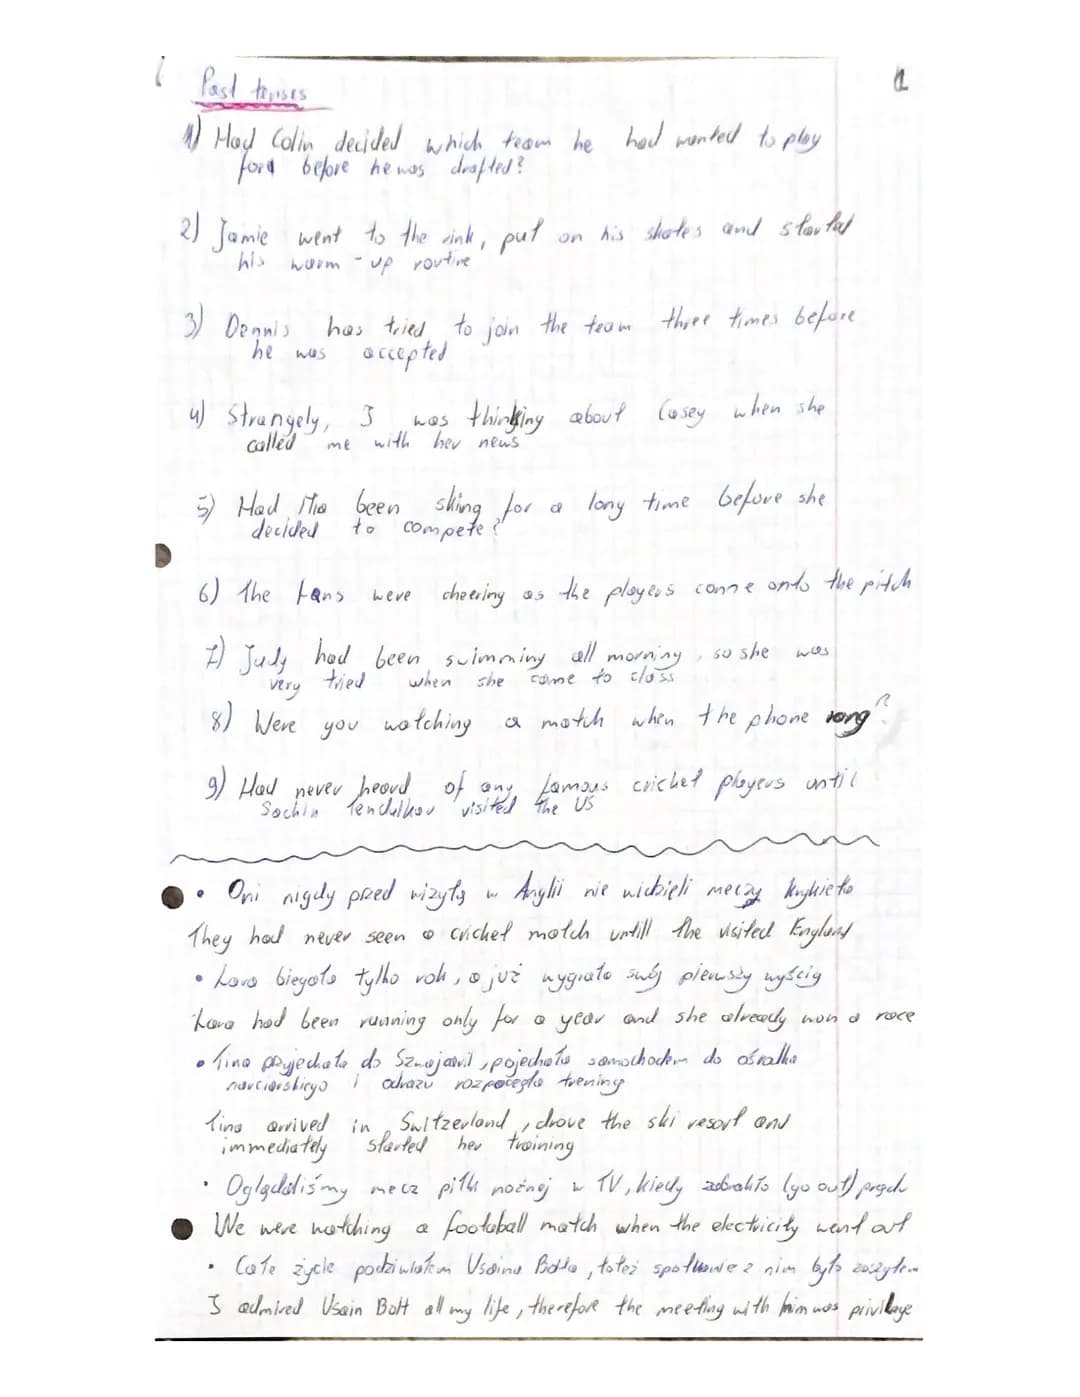 Past tenses
1) Had Colin decided which team he had wanted to play
for before he was drafted?
2) Jamie went to the rink, put on his skates and started
his warm-up routine
3) Dennis has tried to join the team three times before
he was accepted
4) Strangely, I was thinking about Casey when she
called me with her news
5) Had Mia been skiing for a long time before she
decided to compete?
6) The fans were cheering as the players came onto the pitch
7) Judy had been swimming all morning, so she was
very tried when she came to class
8) Were you watching a match when the phone rang?
9) Had never heard of any famous cricket players until
Sachin Tendulkar visited the US
• Oni nigdy przed wizytą w Anglii nie widzieli meczy krykieta
They had never seen a cricket match untill the visited England
• Lara biegała tylko rok, a już wygrała swój pierwszy wyścig
Lara had been running only for a year and she already won a race
• Tina przyjechała do Szwajcarii, pojechała samochodem do ośrodka
narciarskiego i odrazu rozpoczęła trening
Tina arrived in Switzerland, drove the ski resort and
immediately started her training
• Oglądaliśmy mecz piłki nożnej w TV, kiedy zabrakło (go out) prądu
We were watching a footaball match when the electricity went out
• Całe życie podziwiałem Usaina Bolta, toteż spotkanie z nim było zaszytem
I admired Usain Bolt all my life, therefore the meeting with him was privilage